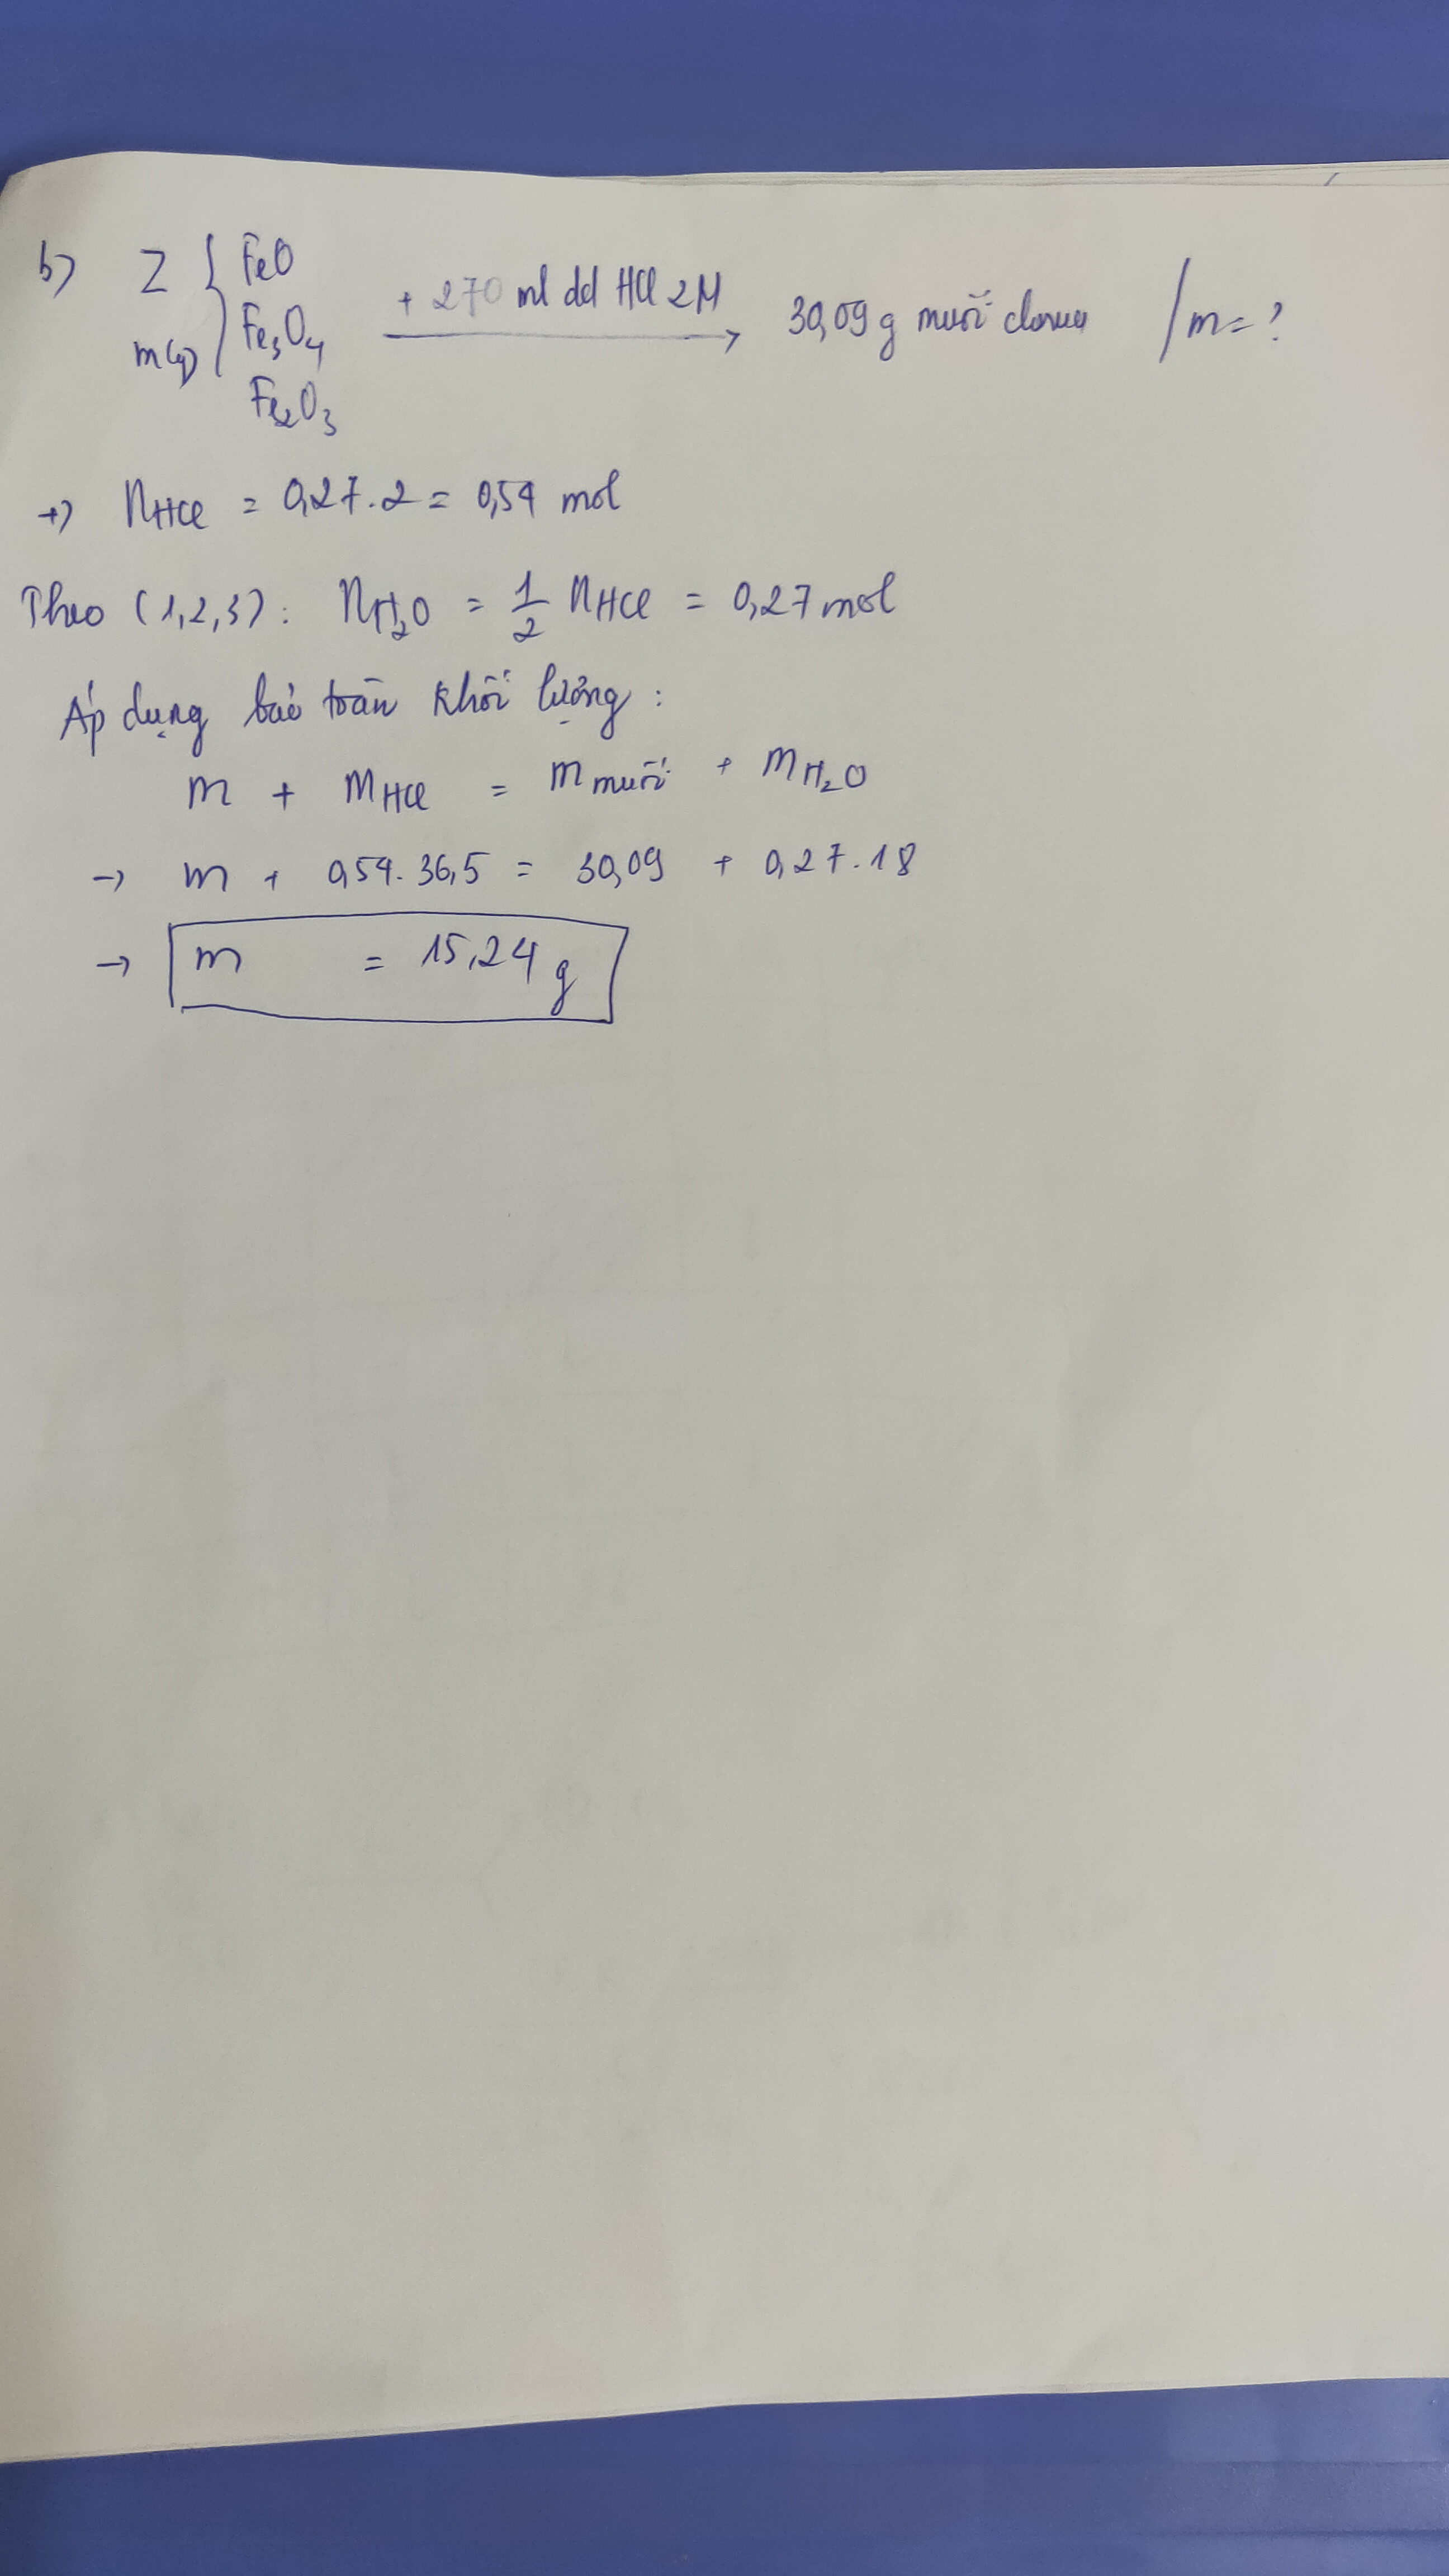 b) Z { FeO
m(g) Fe₃O₄ + 270 ml dd HCl 2M → 30,09 g muối clorua / m = ?
Fe₂O₃
+) nHCl = 0,27.2 = 0,54 mol
Theo (1,2,3): nH₂O = 1/2 nHCl = 0,27 mol
Áp dụng bảo toàn khối lượng:
m + mHCl = m muối + mH₂O
→ m + 0,54.36,5 = 30,09 + 0,27.18
→ m = 15,24 g